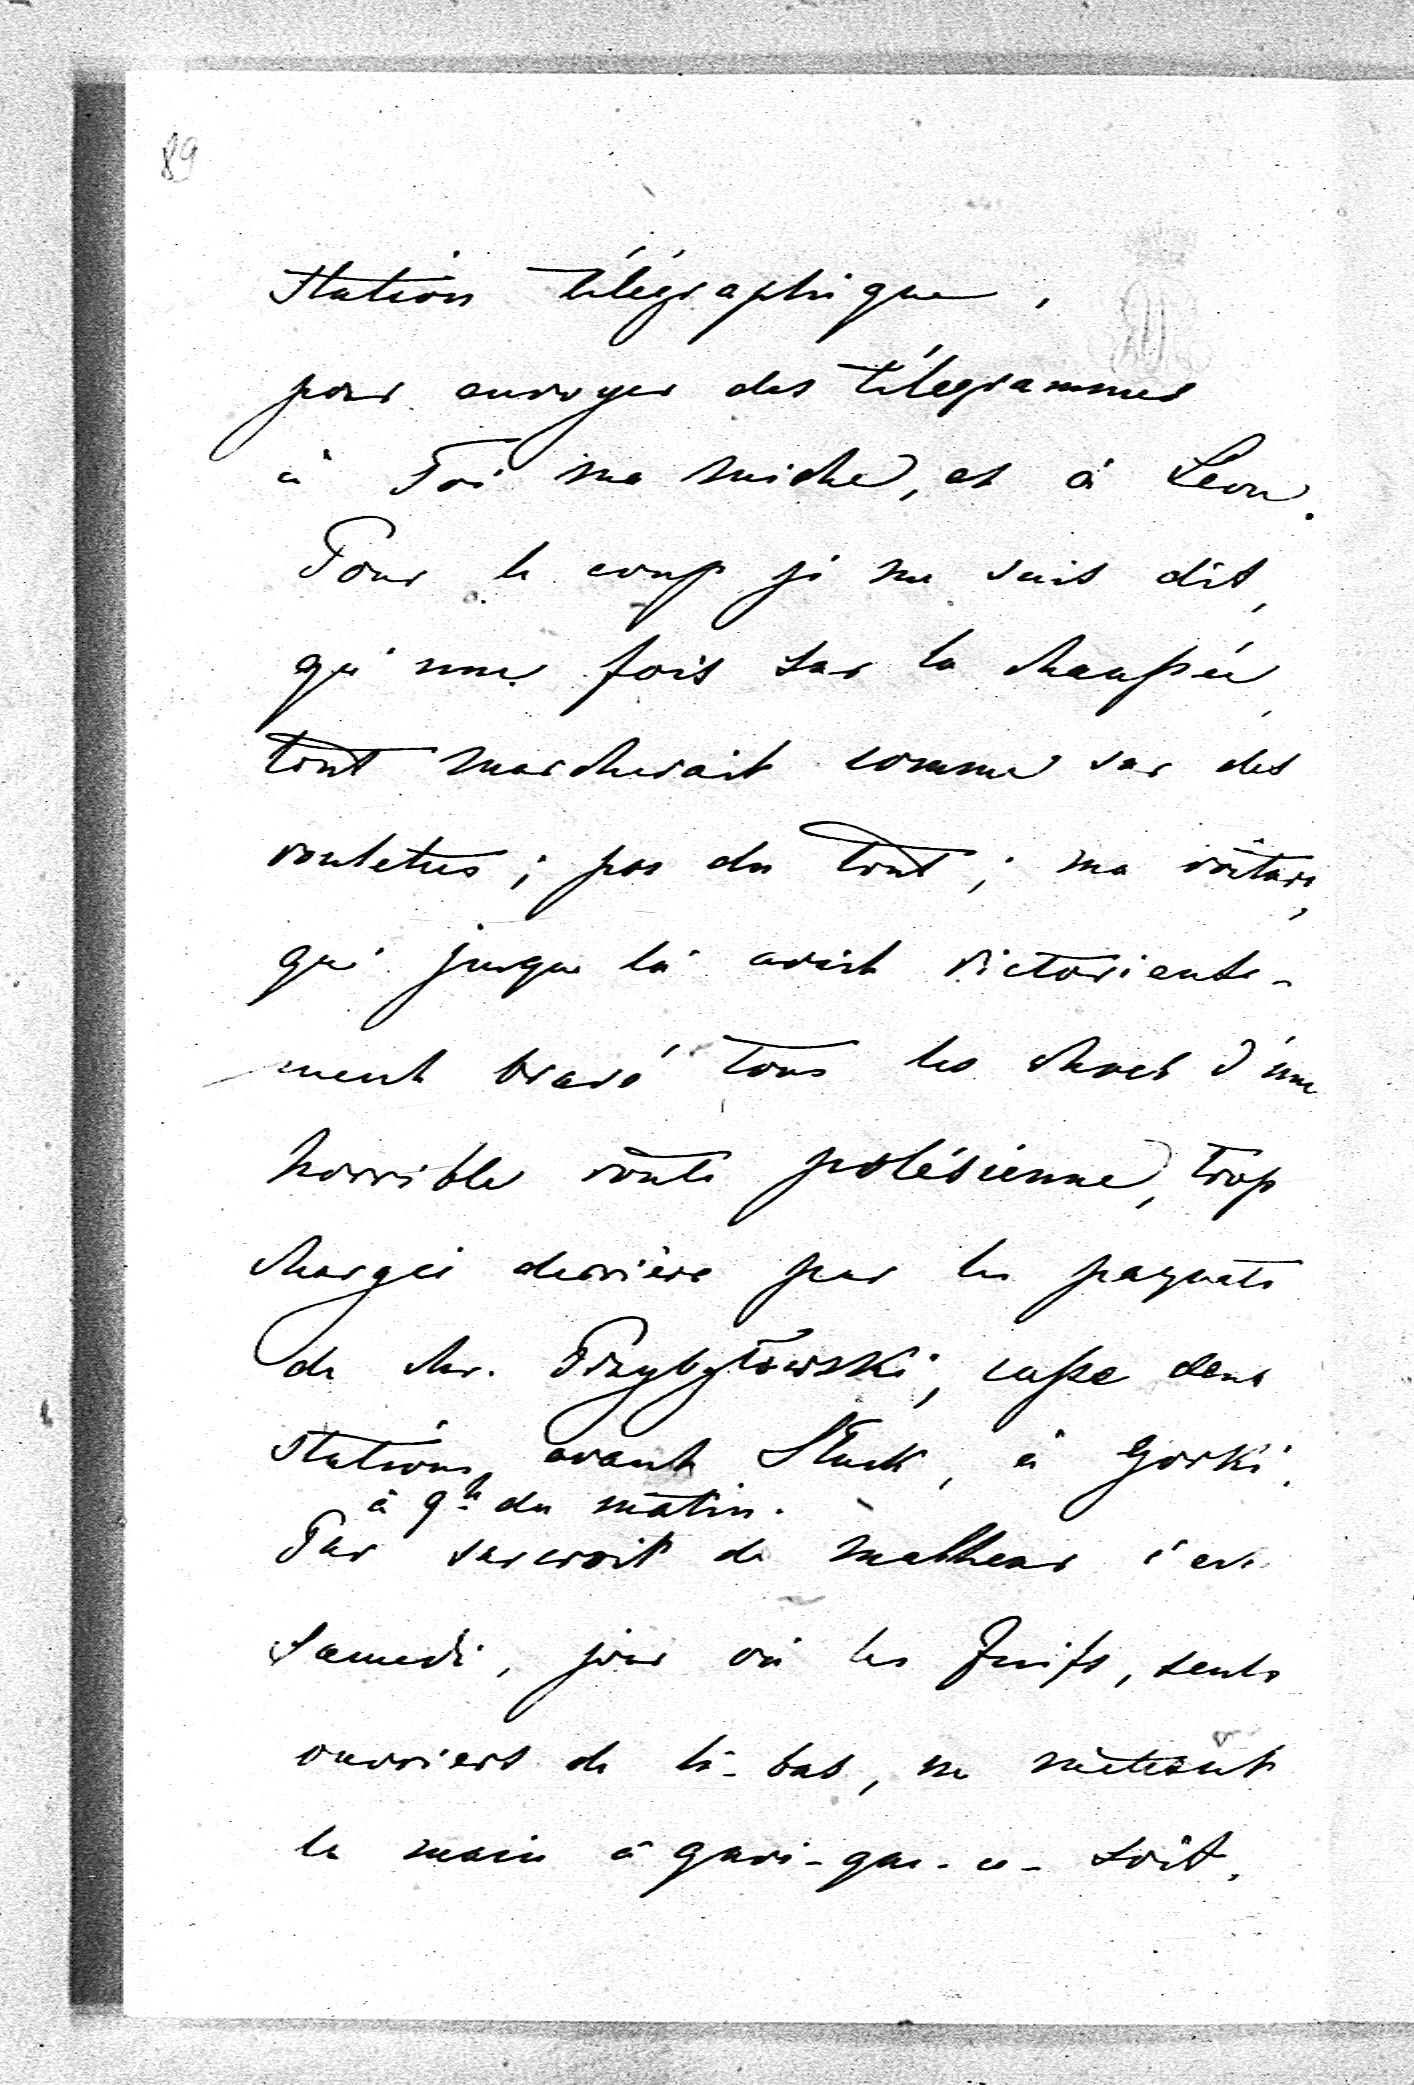 89
station télégraphique,
pour envoyer des télégrammes
à Toi ma miche, et à Léon.
Pour le coup je me suis dit,
qu'une fois sur la chaussée,
tout marcherait comme sur des
roulettes; pas du tout; ma voiture,
qui jusque là avait victorieuse-
ment bravé tous les chocs d'une
horrible route polésienne, trop
chargée derrière par les paquets
de Mr. Przybyłowski, casse deux
stations avant Sluck, à Gorki,
à 9h du matin.
Par surcroit de malheur c'est
Samedi, jour où les Juifs, seuls
ouvriers de là-bas, ne mettent
la main à quoi-que-ce-soit,